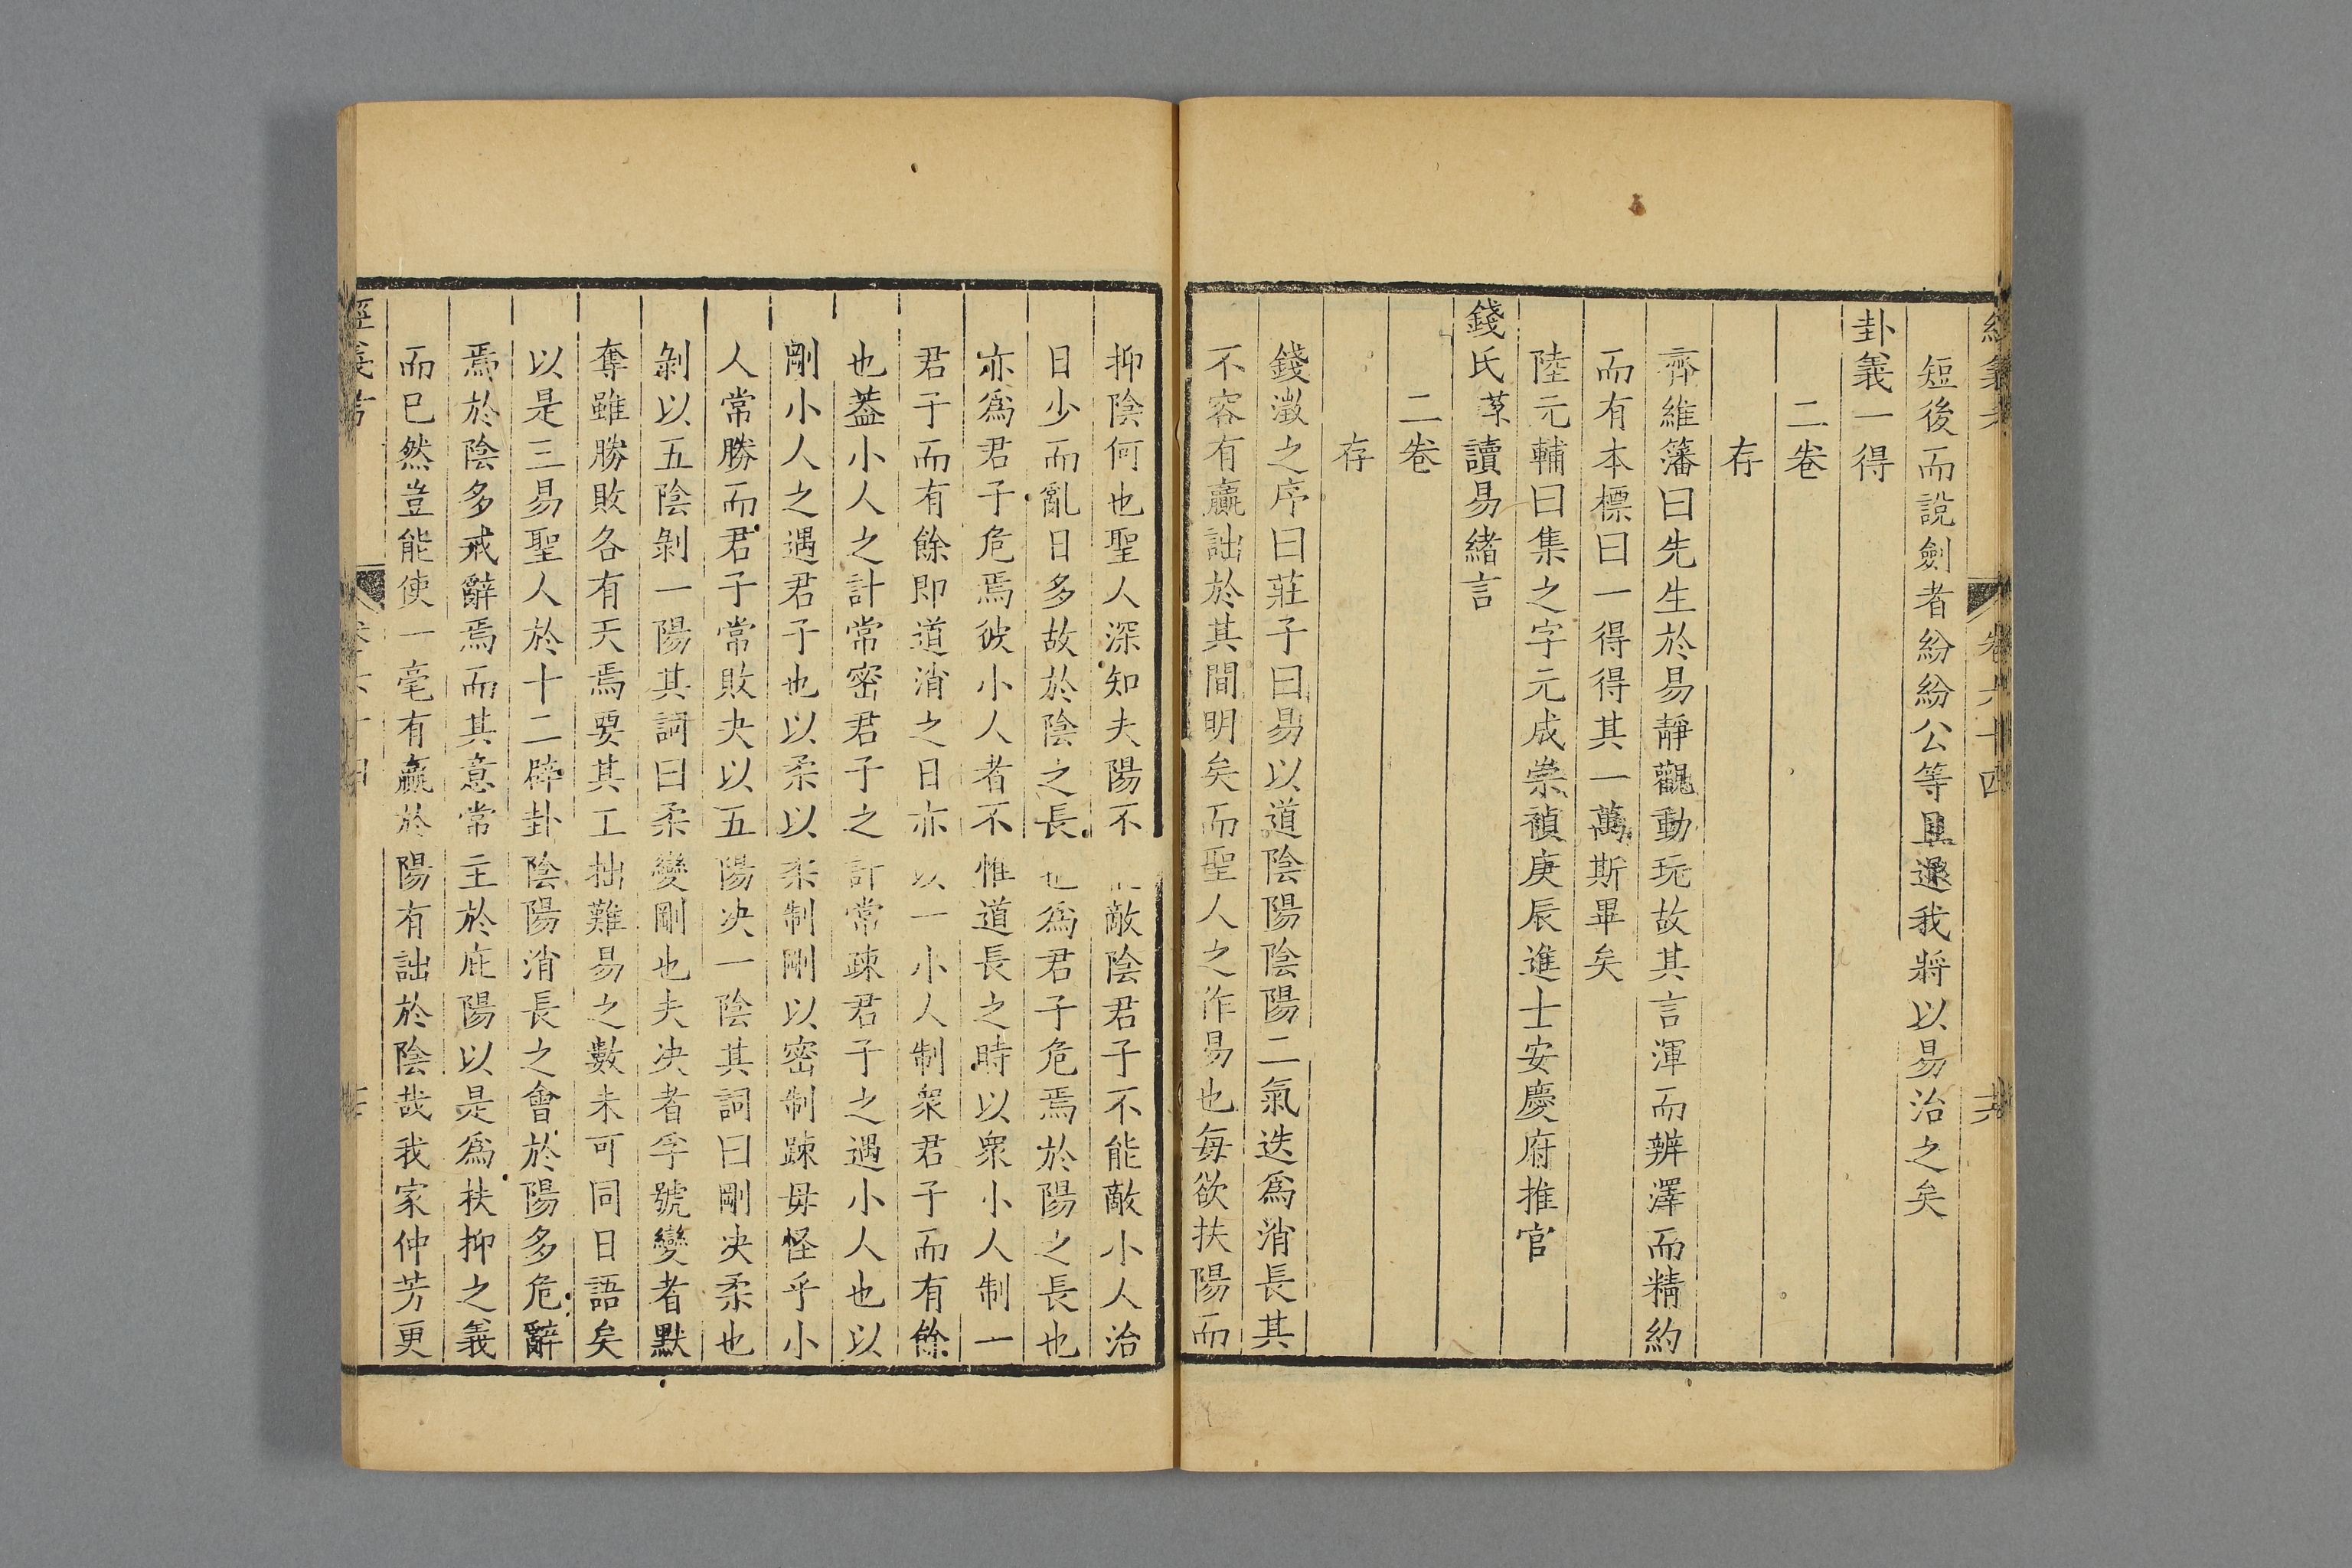 短後而說劍者紛紛公等且退我將以易治之矣
卦義一得
二卷
存
齊維籓曰先生於易靜觀動玩故其言渾而辨澤而精約
而有本標曰一得得其一萬斯畢矣
陸元輔曰集之字元成崇禎庚辰進士安慶府推官
錢氏棻讀易緒言
二卷
存
錢澂之序曰莊子曰易以道陰陽陰陽二氣迭爲消長其
不容有贏詘於其間明矣而聖人之作易也每欲扶陽而
抑陰何也聖人深知夫陽不敵陰君子不能敵小人治
日少而亂日多故於陰之長也爲君子危焉於陽之長也
亦爲君子危焉彼小人者不惟道長之時以衆小人制一
君子而有餘即道消之日亦以一小人制衆君子而有餘
也葢小人之計常密君子之計常疎君子之遇小人也以
剛小人之遇君子也以柔以柔制剛以密制踈毋怪乎小
人常勝而君子常敗夬以五陽决一陰其詞曰剛决柔也
剝以五陰剝一陽其詞曰柔變剛也夫决者孚號變者默
奪雖勝敗各有天焉要其工拙難易之數未可同日語矣
以是三易聖人於十二辟卦陰陽消長之會於陽多危辭
焉於陰多戒辭焉而其意常主於庇陽以是爲扶抑之義
而已然豈能使一毫有贏於陽有詘於陰哉我家仲芳更